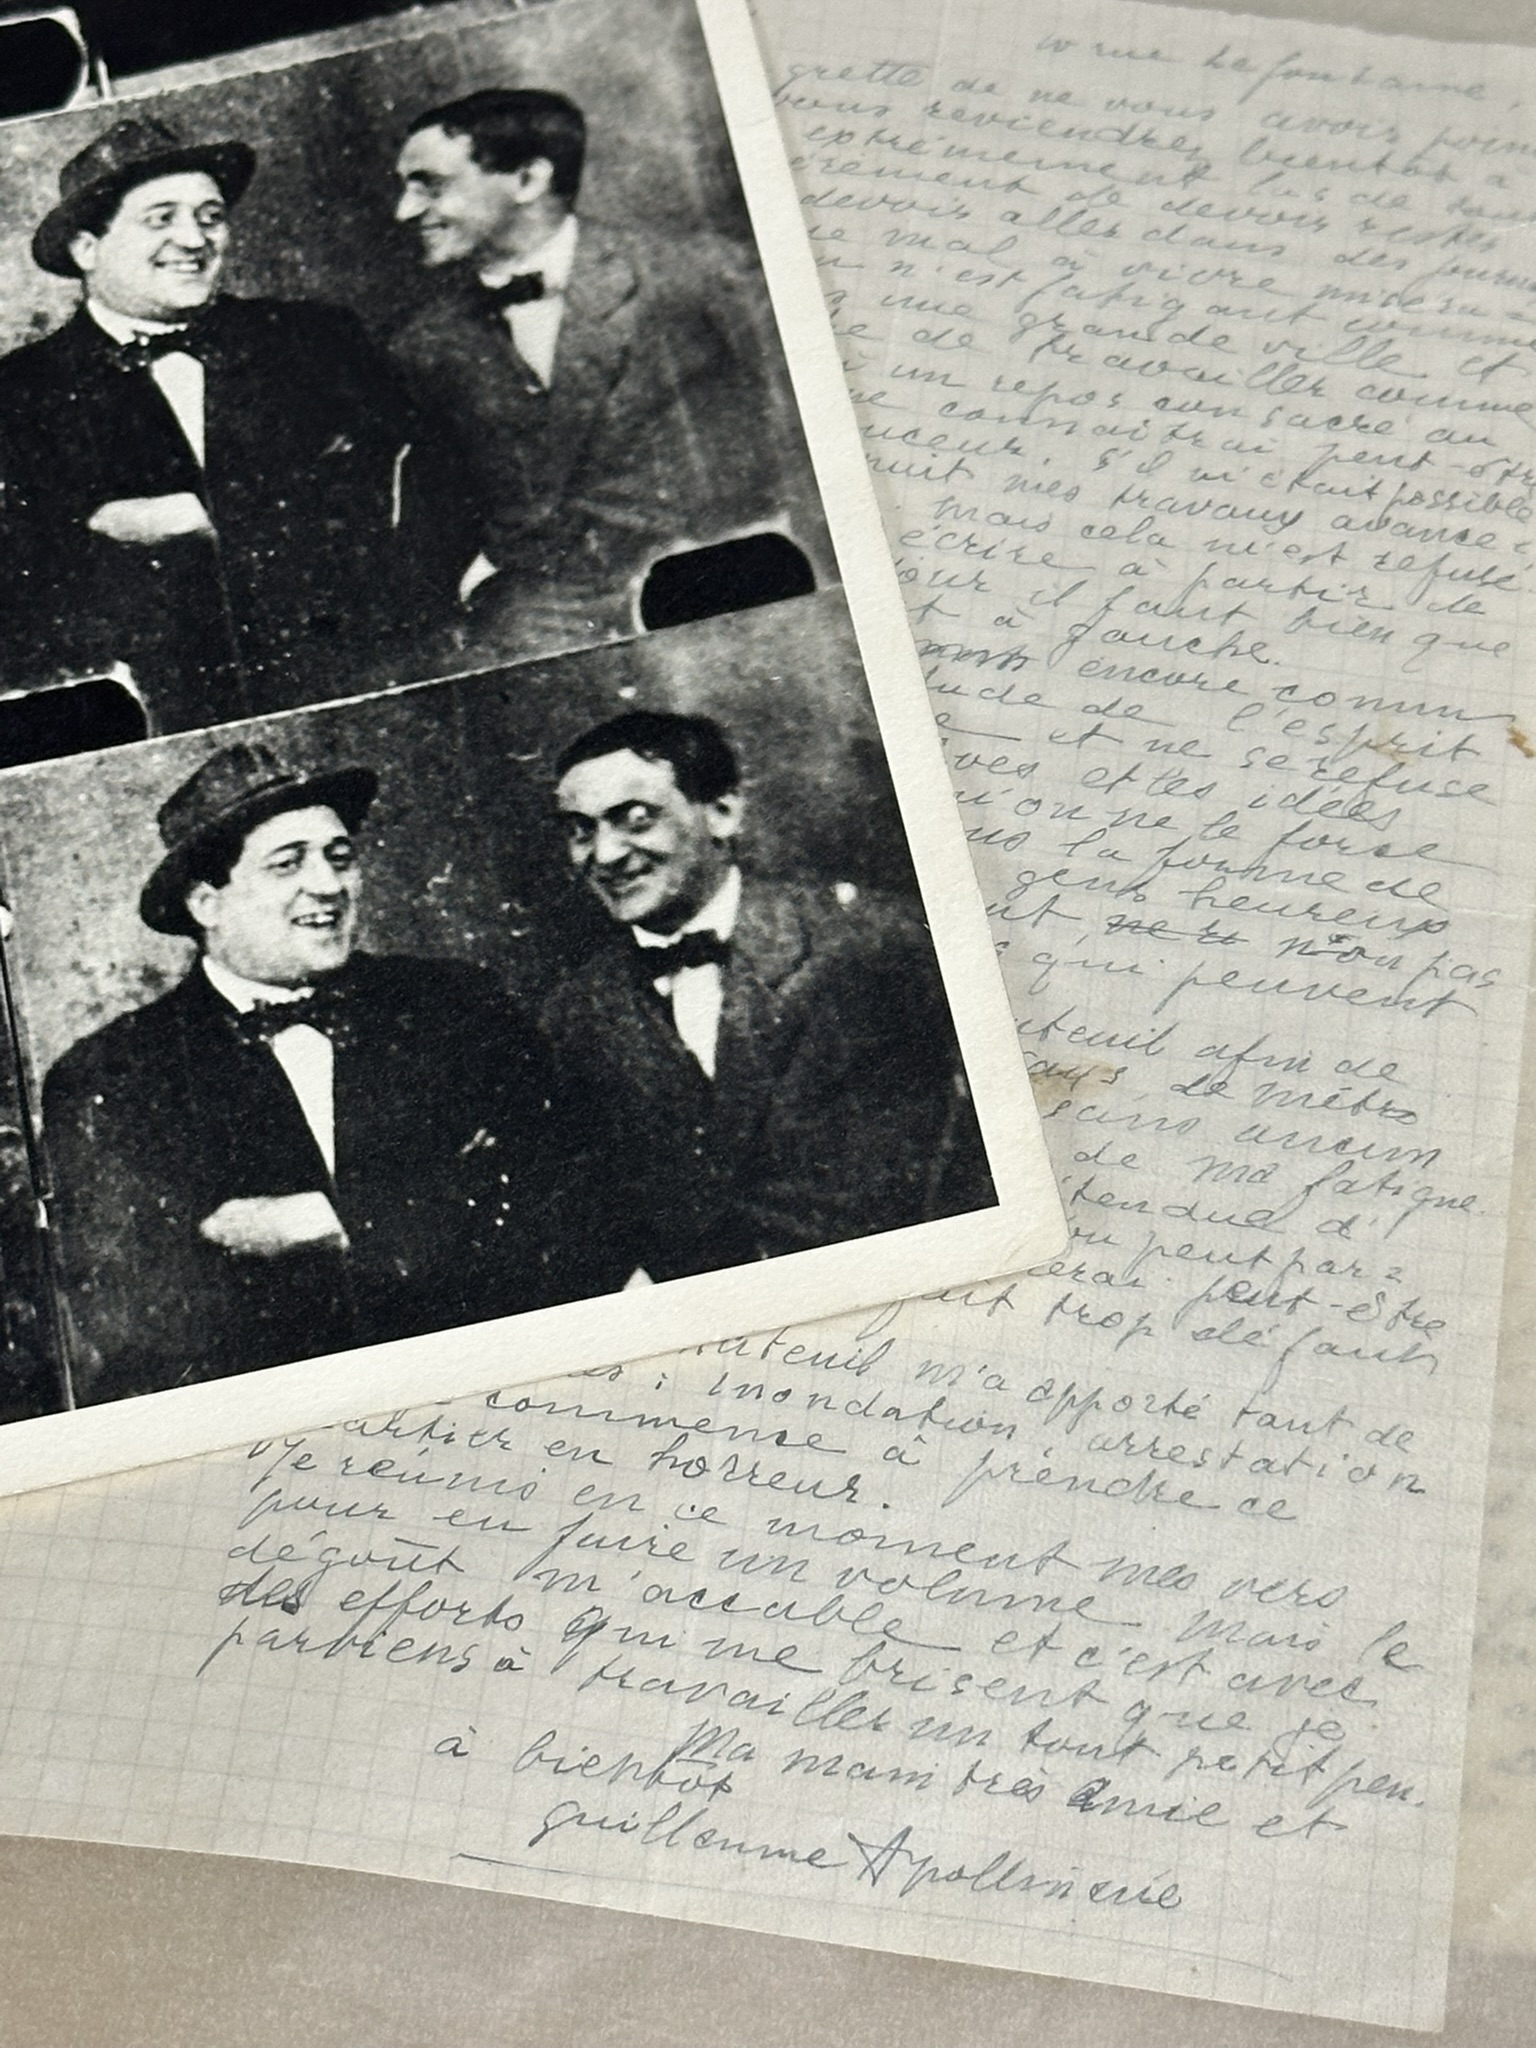 10 rue La Fontaine,
grette de ne vous avoir point
vous reviendrez bientôt à
extrêmement las de tout
èrement de devoir rester
devoir aller dans des journ
re mal à vivre miséra=
n n'est fatigant comme
s une grande ville et
de travailler comme
à un repos consacré au
ne connaîtrai peut-être
uceur. S'il m'était possible
nuit mes travaux avance
Mais cela m'est refusé.
écrire à partir de
jour il faut bien que
t à gauche.
encore comm
tude de l'esprit
e et ne se refuse
ves et les idées
u'on ne le force
us la forme de
gens heureux
nt non pas
s qui peuvent
uteuil afin de
de métro
sans aucun
de ma fatigue.
tendue d'
ou peut par=
erai peut-être
fait trop défaut
Auteuil m'a apporté tant de
es : inondation, arrestation
commence à prendre ce
artier en horreur.
Je réunis en ce moment mes vers
pour en faire un volume mais le
dégoût m'accable et c'est avec
des efforts qui me brisent que je
parviens à travailler un tout petit peu.
Ma main très amie et
à bientôt
Guillaume Apollinaire